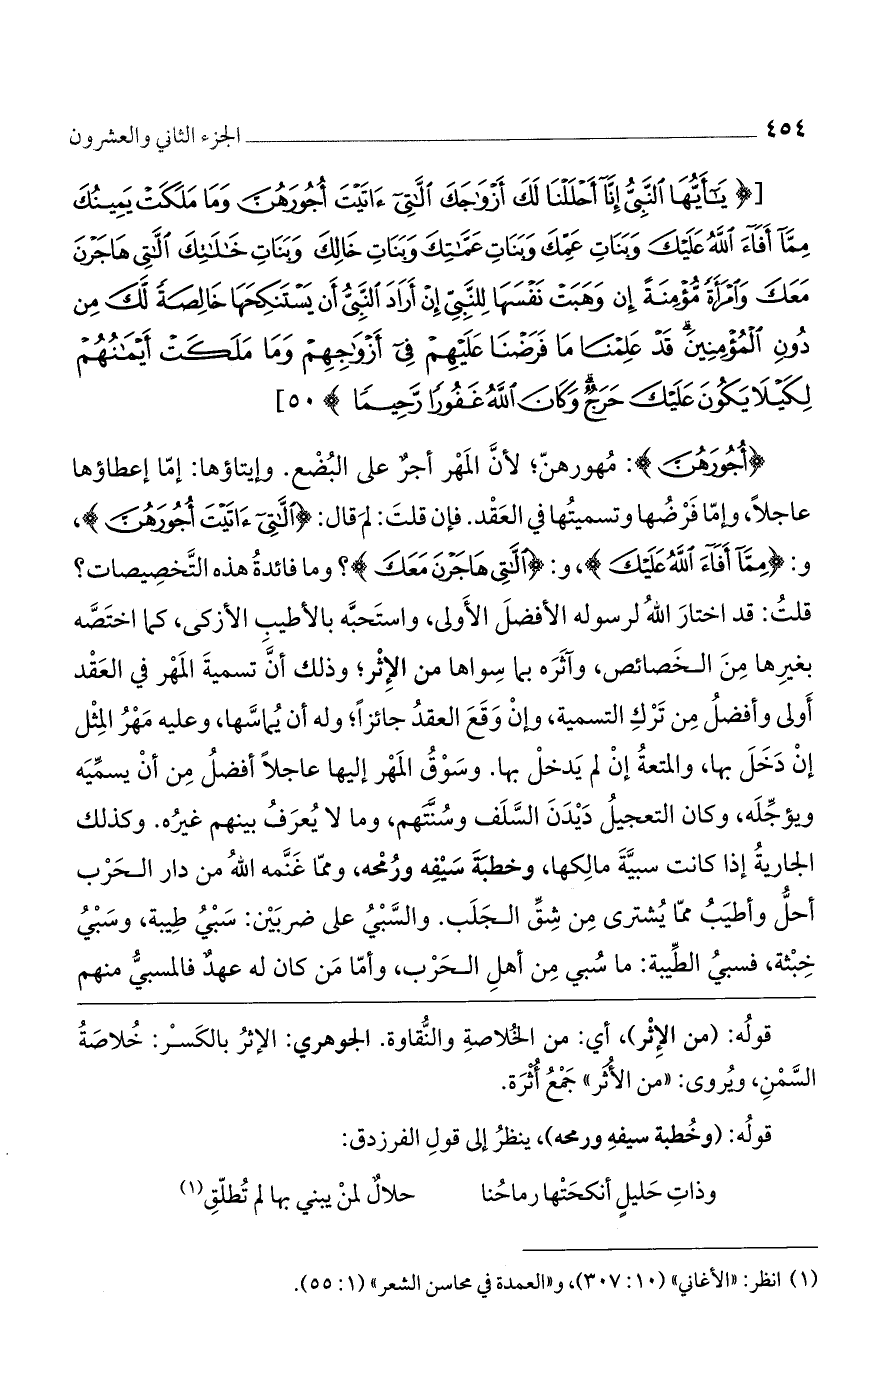 ٤٥٤ الجزء الثاني والعشرون
[﴿ يَٰٓأَيُّهَا ٱلنَّبِىُّ إِنَّآ أَحْلَلْنَا لَكَ أَزْوَٰجَكَ ٱلَّٰتِىٓ ءَاتَيْتَ أُجُورَهُنَّ وَمَا مَلَكَتْ يَمِينُكَ
مِمَّآ أَفَآءَ ٱللَّهُ عَلَيْكَ وَبَنَاتِ عَمِّكَ وَبَنَاتِ عَمَّٰتِكَ وَبَنَاتِ خَالِكَ وَبَنَاتِ خَٰلَٰتِكَ ٱلَّٰتِى هَاجَرْنَ
مَعَكَ وَٱمْرَأَةً مُّؤْمِنَةً إِن وَهَبَتْ نَفْسَهَا لِلنَّبِىِّ إِنْ أَرَادَ ٱلنَّبِىُّ أَن يَسْتَنكِحَهَا خَالِصَةً لَّكَ مِن
دُونِ ٱلْمُؤْمِنِينَ ۗ قَدْ عَلِمْنَا مَا فَرَضْنَا عَلَيْهِمْ فِىٓ أَزْوَٰجِهِمْ وَمَا مَلَكَتْ أَيْمَٰنُهُمْ
لِكَيْلَا يَكُونَ عَلَيْكَ حَرَجٌ ۗ وَكَانَ ٱللَّهُ غَفُورًا رَّحِيمًا ﴾ ٥٠]
﴿أُجُورَهُنَّ﴾: مُهورهنّ؛ لأنَّ المَهْر أجرٌ على البُضْع. وإيتاؤها: إمّا إعطاؤها
عاجلاً، وإمّا فَرْضُها وتسميتُها في العَقْد. فإن قلتَ: لمَ قال: ﴿ٱلَّٰتِىٓ ءَاتَيْتَ أُجُورَهُنَّ﴾،
و: ﴿مِمَّآ أَفَآءَ ٱللَّهُ عَلَيْكَ﴾، و: ﴿ٱلَّٰتِى هَاجَرْنَ مَعَكَ﴾؟ وما فائدةُ هذه التَّخصِيصات؟
قلتُ: قد اختارَ اللهُ لرسوله الأفضلَ الأَولى، واستَحبَّه بالأطيبِ الأزكى، كما اختَصَّه
بغيرِها مِنَ الـخَصائص، وآثَرَه بما سِواها من الإِثْر؛ وذلك أنَّ تسميةَ المَهْر في العَقْد
أولى وأفضلُ مِن تَرْكِ التسمية، وإنْ وَقَعَ العقدُ جائزاً؛ وله أن يُماسَّها، وعليه مَهْرُ المِثْل
إنْ دَخَلَ بها، والمتعةُ إنْ لم يَدخلْ بها. وسَوْقُ المَهْر إليها عاجلاً أفضلُ مِن أنْ يسمِّيَه
ويؤجِّلَه، وكان التعجيلُ دَيْدَنَ السَّلَف وسُنَّتَهم، وما لا يُعرَفُ بينهم غيرُه. وكذلك
الجاريةُ إذا كانت سبيَّةَ مالِكها، وخطبَةَ سَيْفِه ورُمْحه، وممّا غَنَّمه اللهُ من دار الـحَرْب
أحلُّ وأطيَبُ ممّا يُشترى مِن شِقِّ الـجَلَب. والسَّبْيُ على ضربَيْن: سَبْيُ طِيبة، وسَبْيُ
خِبْثة، فسبيُ الطِّيبة: ما سُبي مِن أهلِ الـحَرْب، وأمّا مَن كان له عهدٌ فالمسبيُّ منهم
قولُه: (من الإِثْر)، أي: من الخُلاصةِ والنُّقاوة. الجوهري: الإثرُ بالكَسـْر: خُلاصَةُ
السَّمْنِ، ويُروى: «من الأُثَر» جَمْعُ أُثْرَة.
قولُه: (وخُطبة سيفهِ ورمحه)، ينظرُ إلى قولِ الفرزدق:
وذاتِ حَليلٍ أنكحَتْها رماحُنا حلالٌ لمنْ يبني بها لم تُطلّقِ(١)
(١) انظر: «الأغاني» (١٠: ٣٠٧)، و«العمدة في محاسن الشعر» (١: ٥٥).